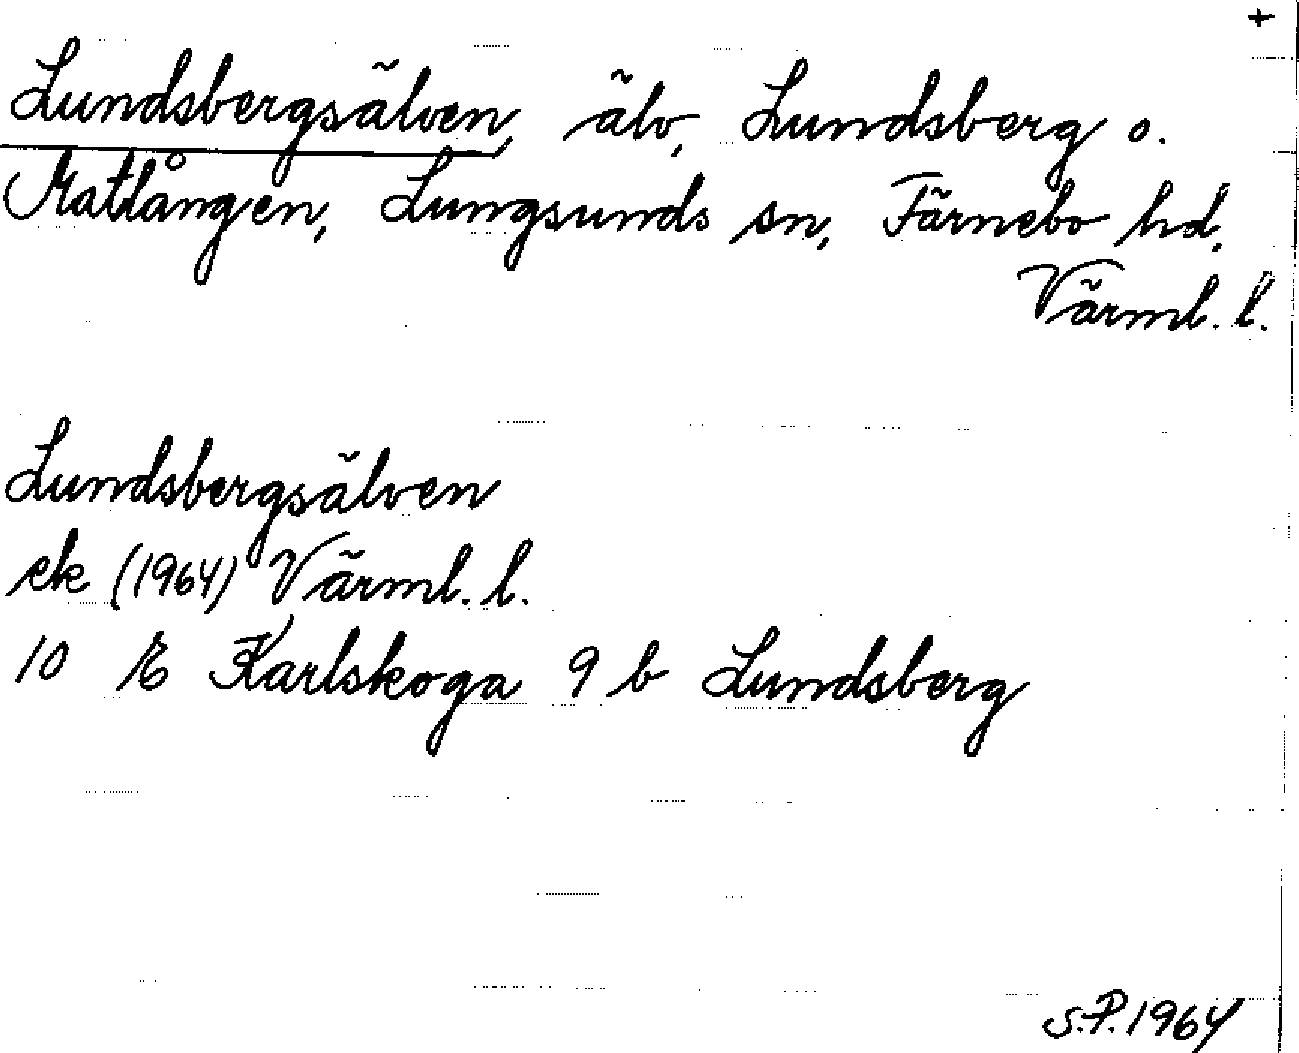 +
Lundsbergsälven, älv, Lundsberg o.
Matlången, Lungsunds sn, Färnebo hd,
Värml. l.
Lundsbergsälven
ek (1964) Värml. l.
10 E Karlskoga 9 b Lundsberg
S.P. 1964